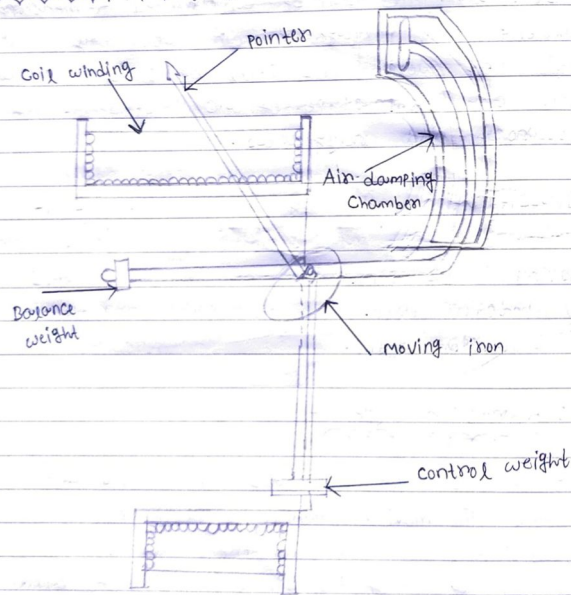 Pointer
Coil winding
Air damping
Chamber
Balance
weight
Moving iron
Control weight